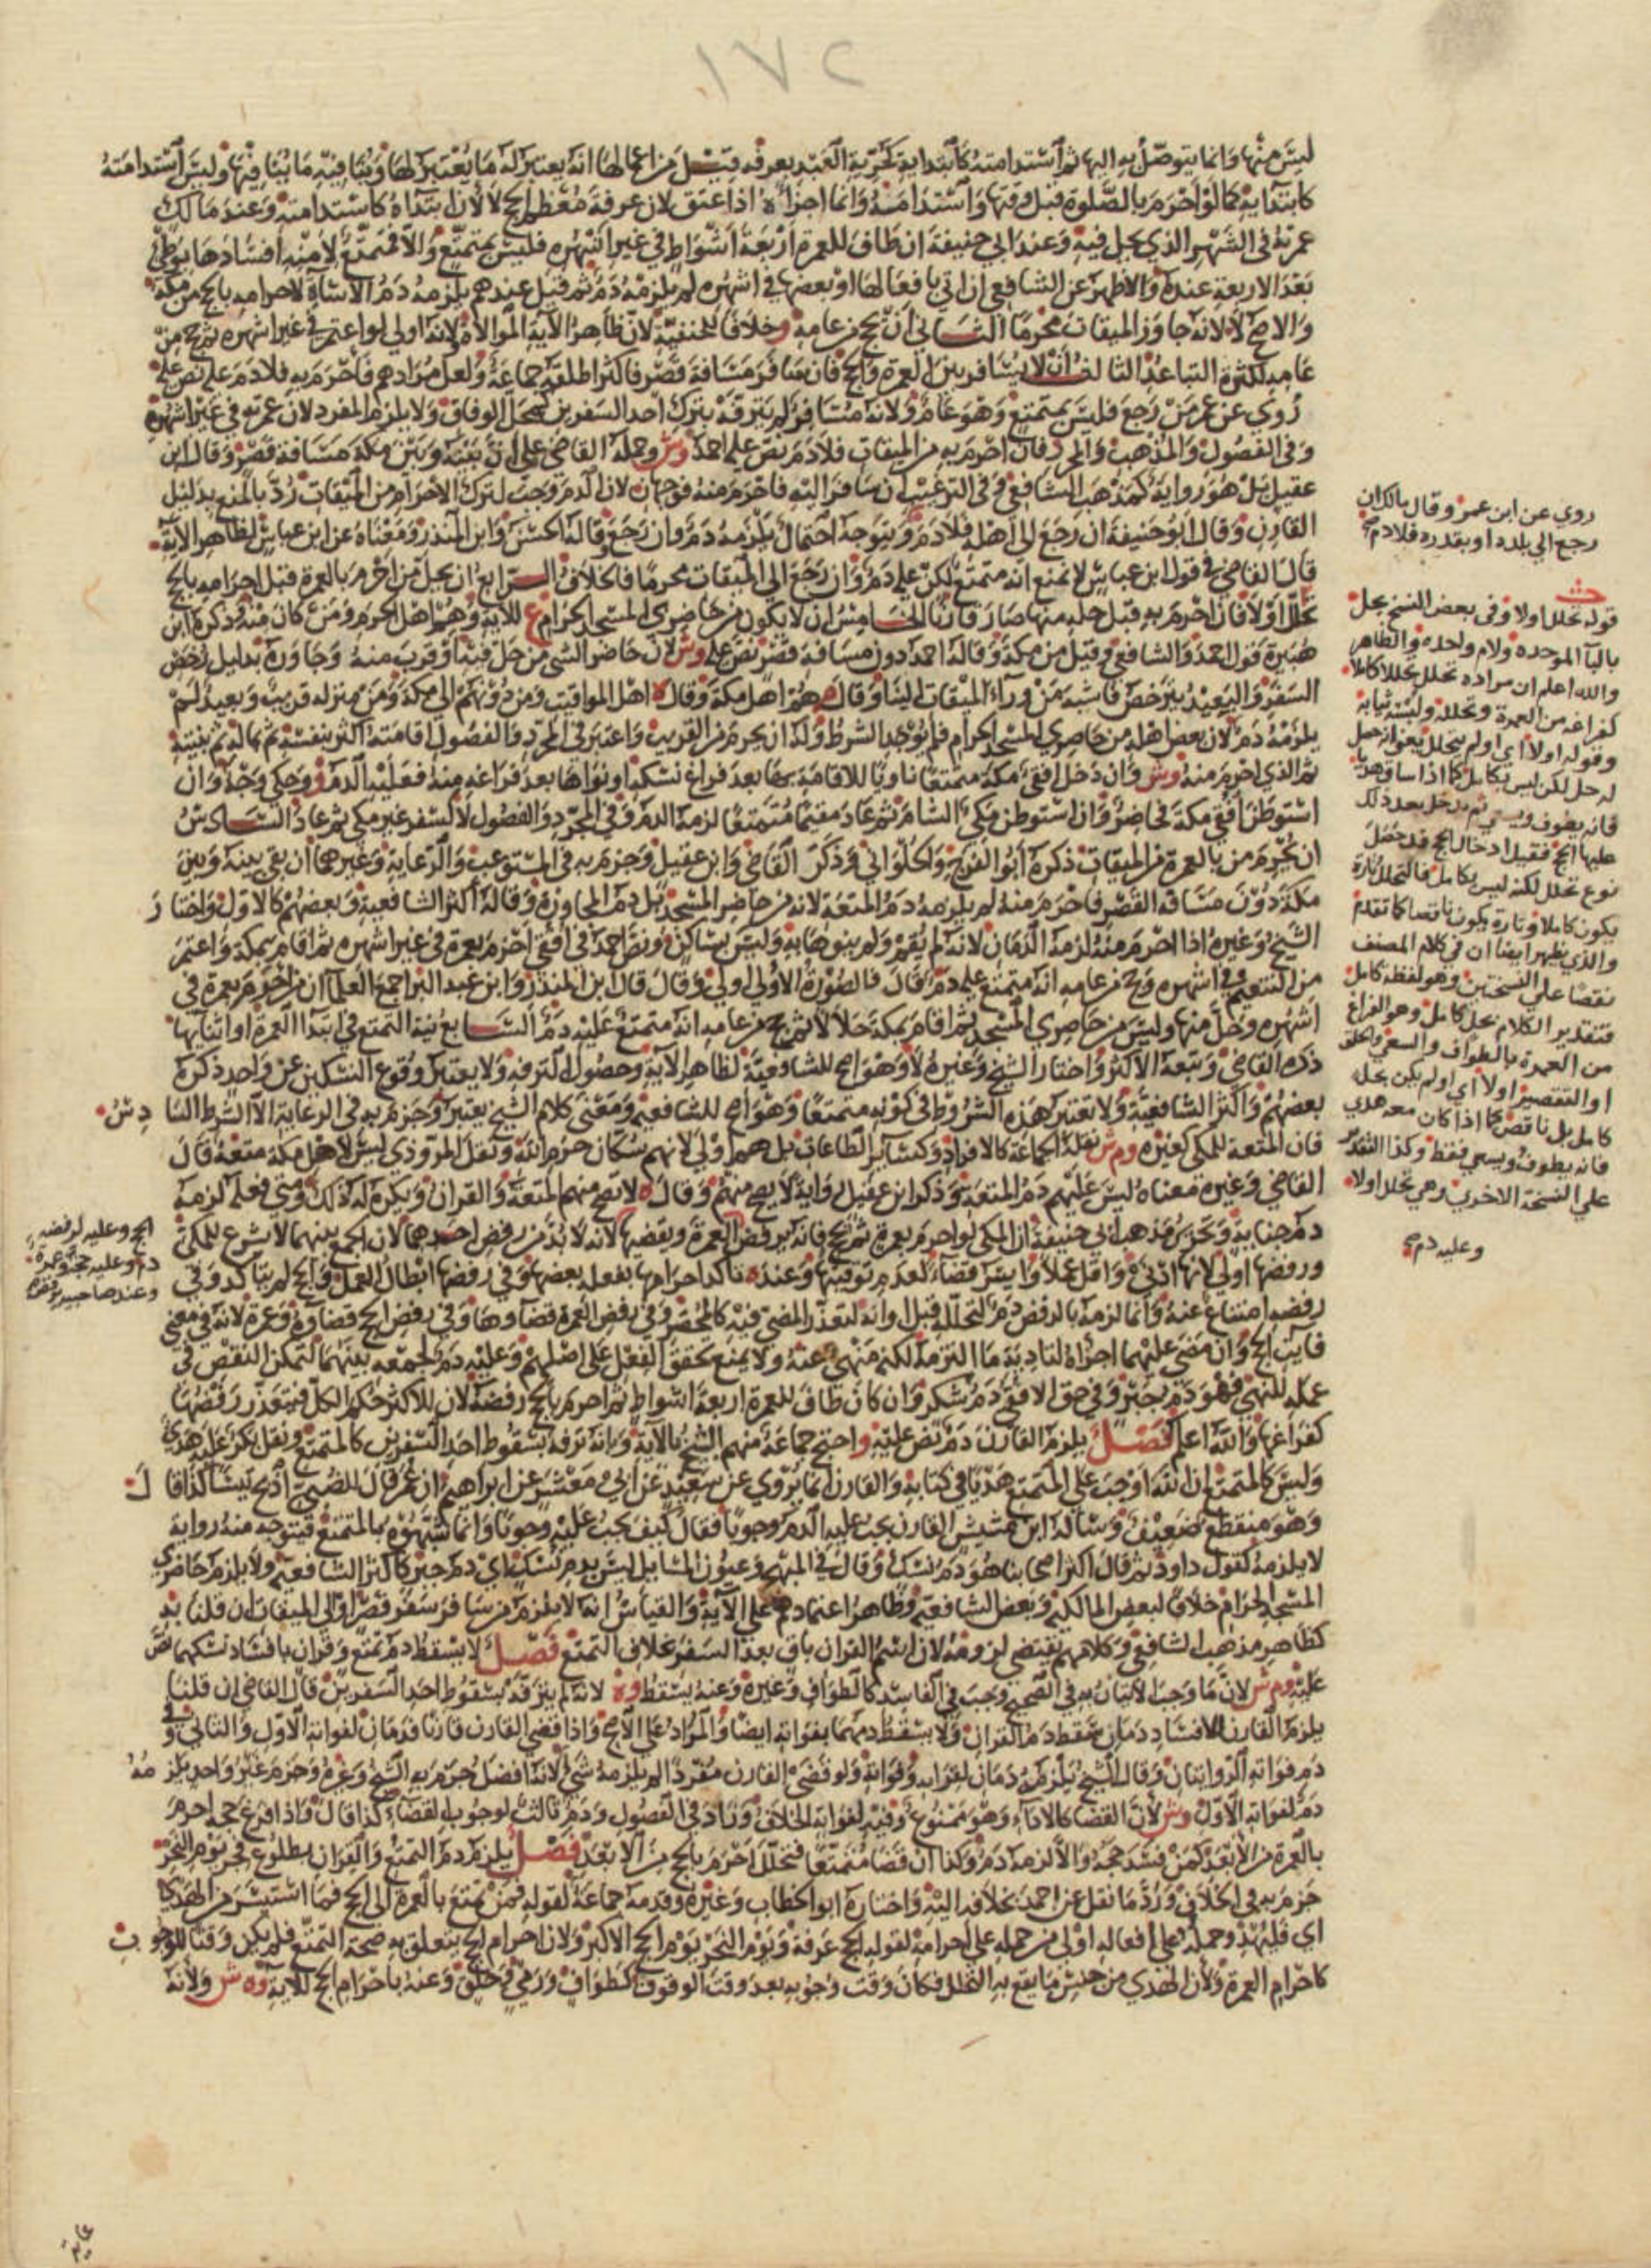 ١٧٢
ليس منها وانما يتوصل به اليها ثم استدامته كابتدايه كحرية العبد بعرفه قيل من اعمالها انه يعتبر له ما يعتبر لها وينافيه ما ينافيها وليس استدامته
كابتدايه كما لو احرم بالصلوة قبل وقتها واستدامه وانما اجزاه اذا عتق لان عرفة معظم الحج لا لان ابتداه كاستدامته وعند مالك
عمرته في الشهر الذي يحل فيه وعند ابي حنيفة ان طاف للعمرة اربعة اشواط في غير اشهره فليس بمتمتع والا فمتمتع لامنه افسادها بوطئ
بعد الاربعة عنده والاظهر عن الشافعي ان اتى بافعالها او بعضها في اشهره لم يلزمه دم ثم قيل عندهم يلزمه دم الاساة لاحرامه بالحج من مكة
والاصح لا لانه جاوز الميقات محرما الثاني ان يحج من عامه وخلافا للحنفية لان ظاهر الاية الموالاة ولانه اولى لو اعتمر في غير اشهره ثم حج من
عامه لكثرة التباعد الثالث ان لا يسافر بين العمرة والحج فان سافر مسافة قصر فاكثر اطلقه جماعة ولعل مرادهم فاحرم به فلا دم عليه نص عليه
روي عن عمر من رجع فليس بمتمتع وهو عام ولانه مسافر لم يترفه بترك احد السفرين كمحل الوفاق ولا يلزم المفرد لان عمرته في غير اشهره
وفي الفصول والمذهب والمحرر فان احرم به من الميقات فلا دم نص عليه احمد وش وحمله القاضي على ان بينه وبين مكة مسافة قصر وقال ابن
عقيل بل هو رواية كمذهب الشافعي وفي الترغيب ان سافر اليه فاحرم منه فوجهان لان الدم وجب لترك الاحرام من الميقات رد بالمنع بدليل
القارن وقال ابو حنيفة ان رجع الى اهله فلا دم ويتوجه احتمال يلزمه دم وان رجع وقاله الحسن وابن المنذر ومعناه عن ابن عباس لظاهر الاية
قال القاضي في قول ابن عباس لا نمنع انه متمتع لكن عليه دم وان رجع الى الميقات محرما فالخلاف الرابع ان يحل من احرم بالعمرة قبل احرامه بالحج
تحلل اولا فان احرم به قبل حله منها صار قارنا الخامس ان لا يكون من حاضري المسجد الحرام ع للاية وهم اهل الحرم ومن كان منه وذكره ابن
هبيرة قول احمد والشافعي وقيل من مكة وقاله احمد دون مسافة قصر نص عليه وش لان حاضر الشي من حل فيه او قرب منه وجاوره بدليل رخص
السفر والبعيد يترخص فاشبه من ورآء الميقات الينا وقال م هم اهل مكة وقال ه اهل المواقيت ومن دونهم الى مكة ومن منزله قريب وبعيد لم
يلزمه دم لان بعض اهله من حاضري المسجد الحرام فلم يوجد الشرط وله ان يحرم من القريب واعتبر في المجرد والفصول اقامته اكثر بنفسه ثم بماله ثم بنيته
ثم الذي احرم منه وش وان دخل افقي مكة متمتعا ناويا للاقامة بها بعد فراغ نسكه او نواها بعد فراغه منه فعليه الدم و وحكي وجه وان
استوطن افقي مكة فحاضر وان استوطن مكي الشام ثم عاد مقيما متمتعا لزمه الدم وفي المجرد والفصول لا كسفر غير مكي ثم عاد السادس
ان يحرم من بالعمرة من الميقات ذكره ابو الفرج والحلواني وذكر القاضي وابن عقيل وجزم به في المستوعب والرعاية وغيرهما ان بقي بينه وبين
مكة دون مسافة القصر فاحرم منه لم يلزمه دم المتعة لانه من حاضر المسجد بل دم المجاوزة وقاله اكثر الشافعية وبعضهم كالاول واختار
الشيخ وغيره اذا احرم منه لزمه الدمان لانه لم يقم ولم ينوها به وليس بساكن ونص احمد في افقي احرم بعمرة في غير اشهره ثم اقام بمكة واعتمر
من التنعيم في اشهره وحج من عامه انه متمتع عليه دم قال فالصورة الاولى اولى وقال قال ابن المنذر وابن عبد البر اجمع العلما ان من احرم بعمرة في
اشهره وحل منها وليس من حاضري المسجد ثم اقام بمكة حلالا ثم حج من عامه انه متمتع عليه دم السابع نية التمتع في ابتدا العمرة او اثنايها
ذكره القاضي وتبعه الاكثر واختار الشيخ وغيره لا وهو اصح للشافعية لظاهر الاية وحصول الترفه ولا يعتبر وقوع النسكين عن واحد ذكره
بعضهم واكثر الشافعية ولا تعتبر هذه الشروط في كونه متمتعا وهو اصح للشافعية ومعنى كلام الشيخ يعتبر وجزم به في الرعاية الا الشرط السادس
فان المتعة للمكي كغيره وم ش نقله الجماعة كالافراد وكسآير الطاعات بل هم اولى لانهم سكان حرم الله ونقل المروذي ليس لاهل مكة متعة قال
القاضي وغيره معناه ليس عليهم دم المتعة وذكر ابن عقيل رواية لا يصح منهم وقال ه لا تصح منهم المتعة والقران ويكره له ذلك ومتى فعله لزمه
دم جناية ونحرس مذهب ابي حنيفة ان المكي لو احرم بعمرة ثم بحج فانه يرفض العمرة ويقضيها لانه لا بد من رفض احدهما لان الجمع بينهما لا يشرع للمكي
ورفضها اولى لانها ادنى واقل عملا وايسر قضآء لعدم توقيتها وعنده تاكد احرامها بفعله بعضها وفي رفضها ابطال العمل والحج لم يتاكد وفي
رفضه امتناع عنه وانما لزمه بالرفض دم لتحلله قبل اوانه لتعذر المضي فيه كالمحصر وفي رفض العمرة قضآوها وفي رفض الحج قضآوه وعمرة لانه في معنى
فايت الحج وان مضى عليهما اجزاه لتاديته ما التزمه لكنه منهي عنه ولا يمنع تحقق الفعل على اصلهم وعليه دم لجمعه بينهما لتمكن النقص في
عمله للنهي فهو دم جبر وفي حق الافقي دم شكر وان كان طاف للعمرة اربعة اشواط ثم احرم بالحج رفضه لان للاكثر حكم الكل فيتعذر رفضها
كفراغها والله اعلم فصل يلزم القارن دم نص عليه واحتج جماعة منهم الشيخ بالاية وبانه ترفه بسقوط احد السفرين كالمتمتع ونقل بكر عليه هدي
وليس كالمتمتع ان الله اوجب على المتمتع هديا في كتابه والقارن انما يروي عن سعيد عن ابي معشر عن ابراهيم ان عمر قال للضبي اذبح تيسا كذا قال
وهو منقطع ضعيف وسآله ابن مشيش القارن يجب عليه الدم وجوبا فقال كيف يجب عليه وجوبا وانما شبهوه بالمتمتع فيتوجه منه رواية
لا يلزمه كقول داود ثم قال اكثر اصحابنا هو دم نسك وقال في المبهج وعيون المسايل ليس بدم نسك اي دم جبر كاكثر الشافعية ولا يلزم حاضري
المسجد الحرام خلافا لبعض المالكية وبعض الشافعية وظاهر اعتمادهم على الاية والقياس انه لا يلزم من سافر سفر قصر او الى الميقات ان قلنا به
كظاهر مذهب الشافعي وكلامهم يقتضي لزومه لان اسم القران باق بعد السفر بخلاف التمتع فصل لا يسقط دم تمتع وقران بافساد نسكهما نص
عليه وم ش لان ما وجب الاتيان به في الصحيح وجب في الفاسد كالطواف وغيره وعنه يسقط وه لانه لم يترفه بسقوط احد السفرين قال القاضي ان قلنا
يلزم القارن للافساد دمان سقط دم القران ولا يسقط دمهما بفواته ايضا والمراد على الاصح واذا قضى القارن قارنا فدمان لفواته الاول والثاني وفي
دم فواته الروايتان وقال الشيخ يلزمه دمان لقرانه وفواته ولو قضى القارن مفردا لم يلزمه شي لانه افضل جزم به الشيخ وغيره وجزم غير واحد يلزمه
دم لفواته الاول وش لان القضا كالادآء وهو ممنوع وفيه لفواته الخلاف وزاد في الفصول ودم ثالث لوجوب القضآء كذا قال واذا فرغ حجه احرم
بالعمرة من الابعد كمن فسد حجه والا لزمه دم وكذا ان قضا متمتعا فتحلل احرم بالحج من الابعد فصل يلزم دم التمتع والقران بطلوع فجر يوم النحر
جزم به في الخلاف ورد ما نقل عن احمد بخلافه اليه واختاره ابو الخطاب وغيره وقدمه جماعة لقوله فمن تمتع بالعمرة الى الحج فما استيسر من الهدي
اي فليهد وحمله على افعاله اولى من حمله على احرامه لقوله الحج عرفة ويوم النحر يوم الحج الاكبر ولان احرام الحج يتعلق به صحة التمتع فلم يكن وقتا للوجوب
كاحرام العمرة ولان الهدي من جنس ما يقع به التحلل فكان وقت وجوبه بعد وقت الوقوف كطواف ورمي وحلق وعنه باحرام الحج للاية وه ش ولانه
روي عن ابن عمر وقال مالك ان
رجع الي بلده او بقدره فلا دم صح
قوله تحلل اولا وفي بعض النسخ بحل
بالبآ الموحده ولام واحده والظاهر
والله اعلم ان مراده تحلل تحللا كاملا
كفراغه من العمرة وتحلله ولبسه ثيابه
وقوله اولا اي او لم يتحلل يعني انه حصل
له حل لكن ليس بكامل كما اذا ساق هديا
فانه يطوف ويسعي ثم يدخل بعد ذلك
عليها الحج فقيل ادخال الحج قد حصل
نوع تحلل لكنه ليس بكامل فالتحلل تارة
يكون كاملا وتارة يكون ناقصا كما تقدم
والذي يظهر ايضا ان في كلام المصنف
نقصا علي النسختين وهو لفظة كامل
فتقدير الكلام بحل كامل وهو الفراغ
من العمرة بالطواف والسعي والحلق
او التقصير اولا اي او لم يكن بحل
كامل بل ناقص كما اذا كان معه هدي
فانه يطوف ويسعي فقط وكذا التقدير
علي النسخة الاخري وهي تحلل اولا
وعليه دم صح
الحج وعليه لرفضه
دم وعليه حجة وعمرة
وعند صاحبيه يرفض